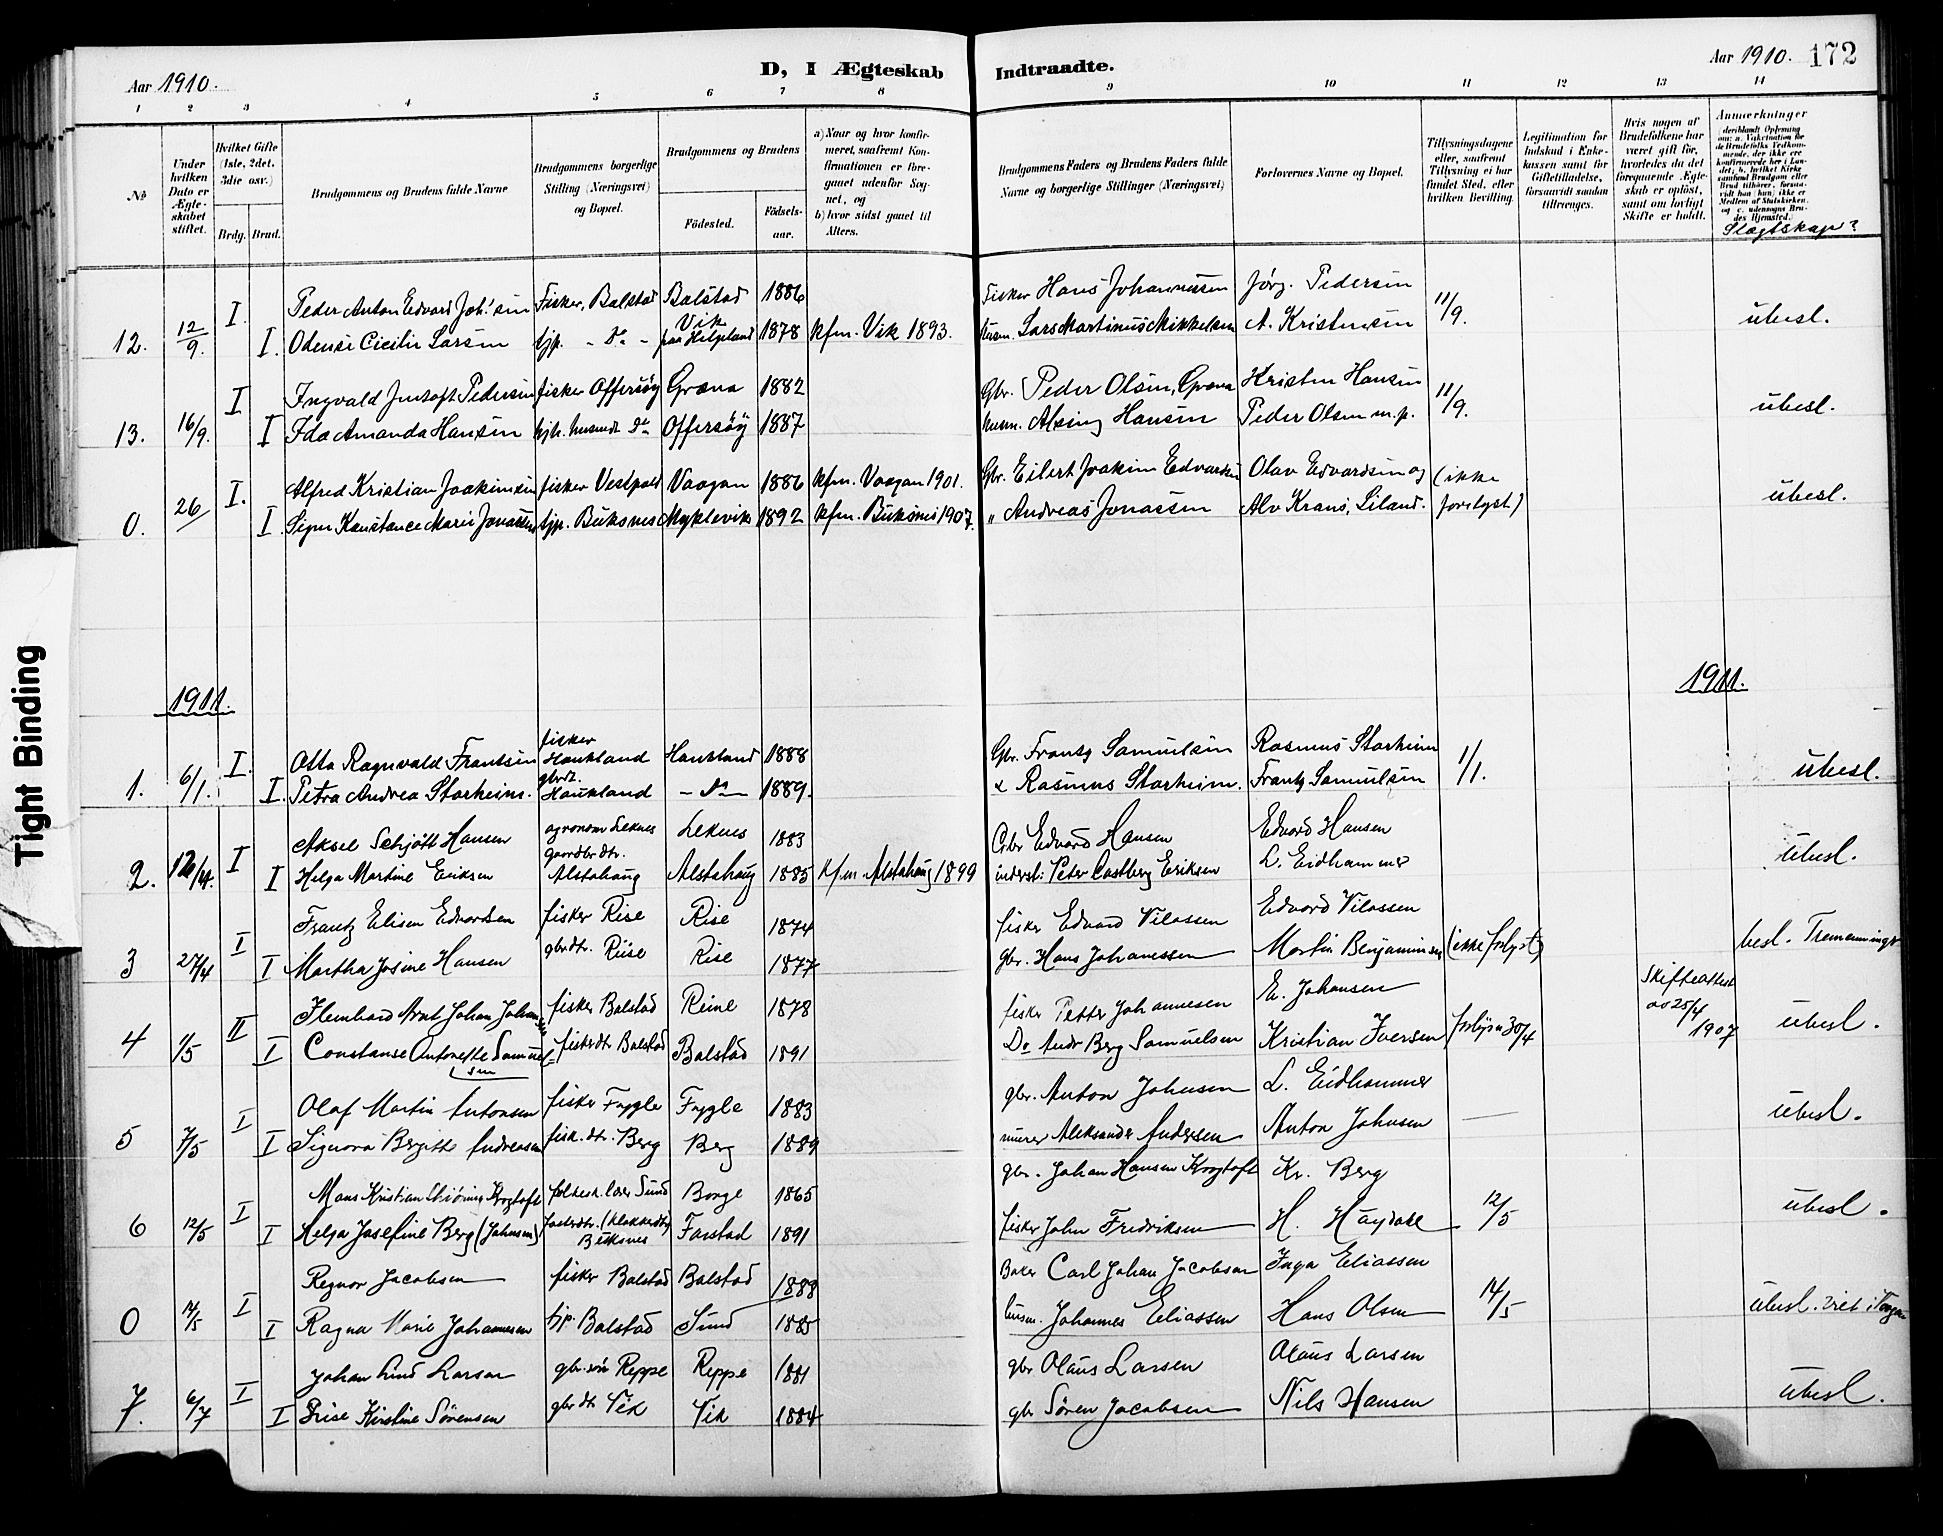 Aar 1910.
D, I Ægteskab Indtraadte.
Aar 1910. 172
1 2 3 4 5 6 7 8 9 10 11 12 13 14
No
Under hvilken Dato er Ægteskabet stiftet.
Hvilket Gifte (1ste, 2det, 3die osv.)
Brdg. Brud.
Brudgommens og Brudens fulde Navne
Brudgommens borgerlige Stilling (Næringsvei) og Bopæl.
Brudgommens og Brudens
Fødested.
Fødselsaar.
a) Naar og hvor konfirmeret, saafremt Konfirmationen er foregaaet udenfor Sognet, og
b) hvor sidst gaaet til Alters.
Brudgommens Faders og Brudens Faders fulde Navne og borgerlige Stillinger (Næringsvei)
Forlovernes Navne og Bopæl.
Tillysningsdagene eller, saafremt Tillysning ei har fundet Sted, efter hvilken Bevilling.
Legitimation for Indskud i Enkekassen samt for Giftetilladelse, forsaavidt saadan tiltrænges.
Hvis nogen af Brudefolkene har været gift før, hvorledes da det foregaaende Ægteskab er opløst, samt om lovligt Skifte er holdt.
Anmærkninger
Slægtskap?
I. Peder Anton Edvard Joh'sen Fisker, Balstad Balstad 1886 Fisker Hans Johannessen Jörg. Pedersen 11/9.
12. 12/9. I. Odense Cicilie Larsen tjp. - Do - Vik paa Helgeland 1878 kfm. Vik 1893. husm. Lars Martinus Mikkelsen A. Kristensen ubesl.
I Ingvald Justoft Pedersen fisker Offersöy Græna 1882 Gbr. Peder Olsen, Græna Kristen Hansen 11/9.
13. 16/9. I Ida Amanda Hansen Do Offersöy 1887 husm. Alsing Hansen Peder Olsen m.p. ubesl.
I. Alfred Kristian Joakimsen fisker Vestpold Vaagan 1886 kfm. Vaagan 1901. Gbr. Eilert Joakim Edvardsen Olav Edvardsen og (ikke
0. 26/ I. Signe Konstance Marie Jonassen tjp. Buksnes Myklevik 1892 kfm. Buksnes 1907. " Andreas Jonassen Alv Krans, Liland. forelyst) ubesl.
1911. 1911.
I. Otto Ragnvald Frantsen fisker Haukland Haukland 1888 Gbr. Frantz Samuelsen Rasmus Storheim 1/1.
1. 6/1. I. Petra Andrea Storheim. Haukland - Do - 1889. Rasmus Storheim. Frantz Samuelsen ubesl.
I Aksel Schjött Hansen agronom Leknes Leknes 1883 Gbr Edvard Hansen Edvard Hansen
2. /4. I Helga Martine Eriksen gaardbr dtr. Alstahaug Alstahaug 1885 kfm Alstahaug 1899 inderst: Peter Castberg Eriksen L. Eidhammer ubesl.
I Frantz Elisen Edvardsen fisker Rise Rise 1874 fisker Edvard Vilassen Edvard Vilassen
3 27/4 I Martha Josine Hansen gbr.dtr. Riise Rise 1877 gbr. Hans Johanessen Martin Benjaminsen (ikke forlyst) besl. Tremenninger
II Arnt Johan Johansen fisker Balstad Reine 1878 fisker Petter Johannesen E. Johansen Skifteattest ao 25/4 1907
4 1/5 I Constanse Antonette Samuelsen fiskerdtr Balstad Balstad 1891 Do Andr Berg Samuelsen Kristian Iversen forlyst 30/4 ubesl.
I Olaf Martin Antonsen fisker Fygle Fygle 1883 gbr. Anton Johnsen L. Eidhammer
5 7/5 I Signora Bergitte Andreasen fisk. dtr. Berg Berg 1889 murer Aleksander Andersen Anton Johnsen — ubesl.
I Mons Kristian Krogtoft Sund Borge 1865 gbr. Johan Hansen Krogtoft Kr. Berg
6 12/5 I Helga Josefine Berg (Johnsen) Fosterdtr. (klokkerdtr) Buksnes Farstad 1891 fisker John Fredriksen H. Haydahl 12/5 ubesl.
I Regnor Jacobsen fisker Balstad Balstad 1888 Baker Carl Johan Jacobsen Inga Eliassen
0 14/5 I Ragna Marie Johannesen tjp. Balstad Sund 1885 husm. Johannes Eliassen Hans Olsen 14/5 ubesl.
I Johan Lind Larsen gbr. sön Reppe Reppe 1881 gbr Olaus Larsen Olaus Larsen
7. 6/7 I Kirstine Sörensen gbr dtr Vik Vik 1884 gbr Sören Jacobsen Nils Hansen ubesl.
Tight Binding